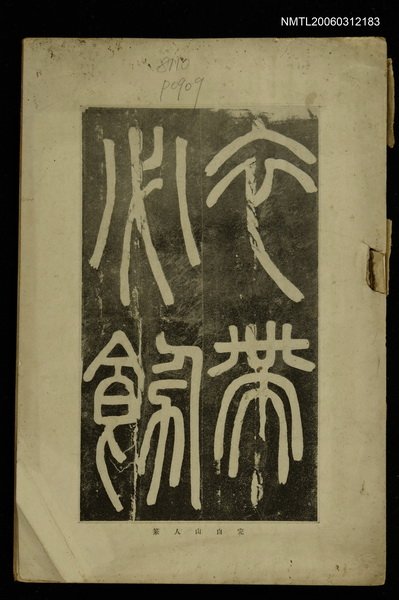 NMTL20060312183
8110
P0909
衣帶
必飭
完白山人篆